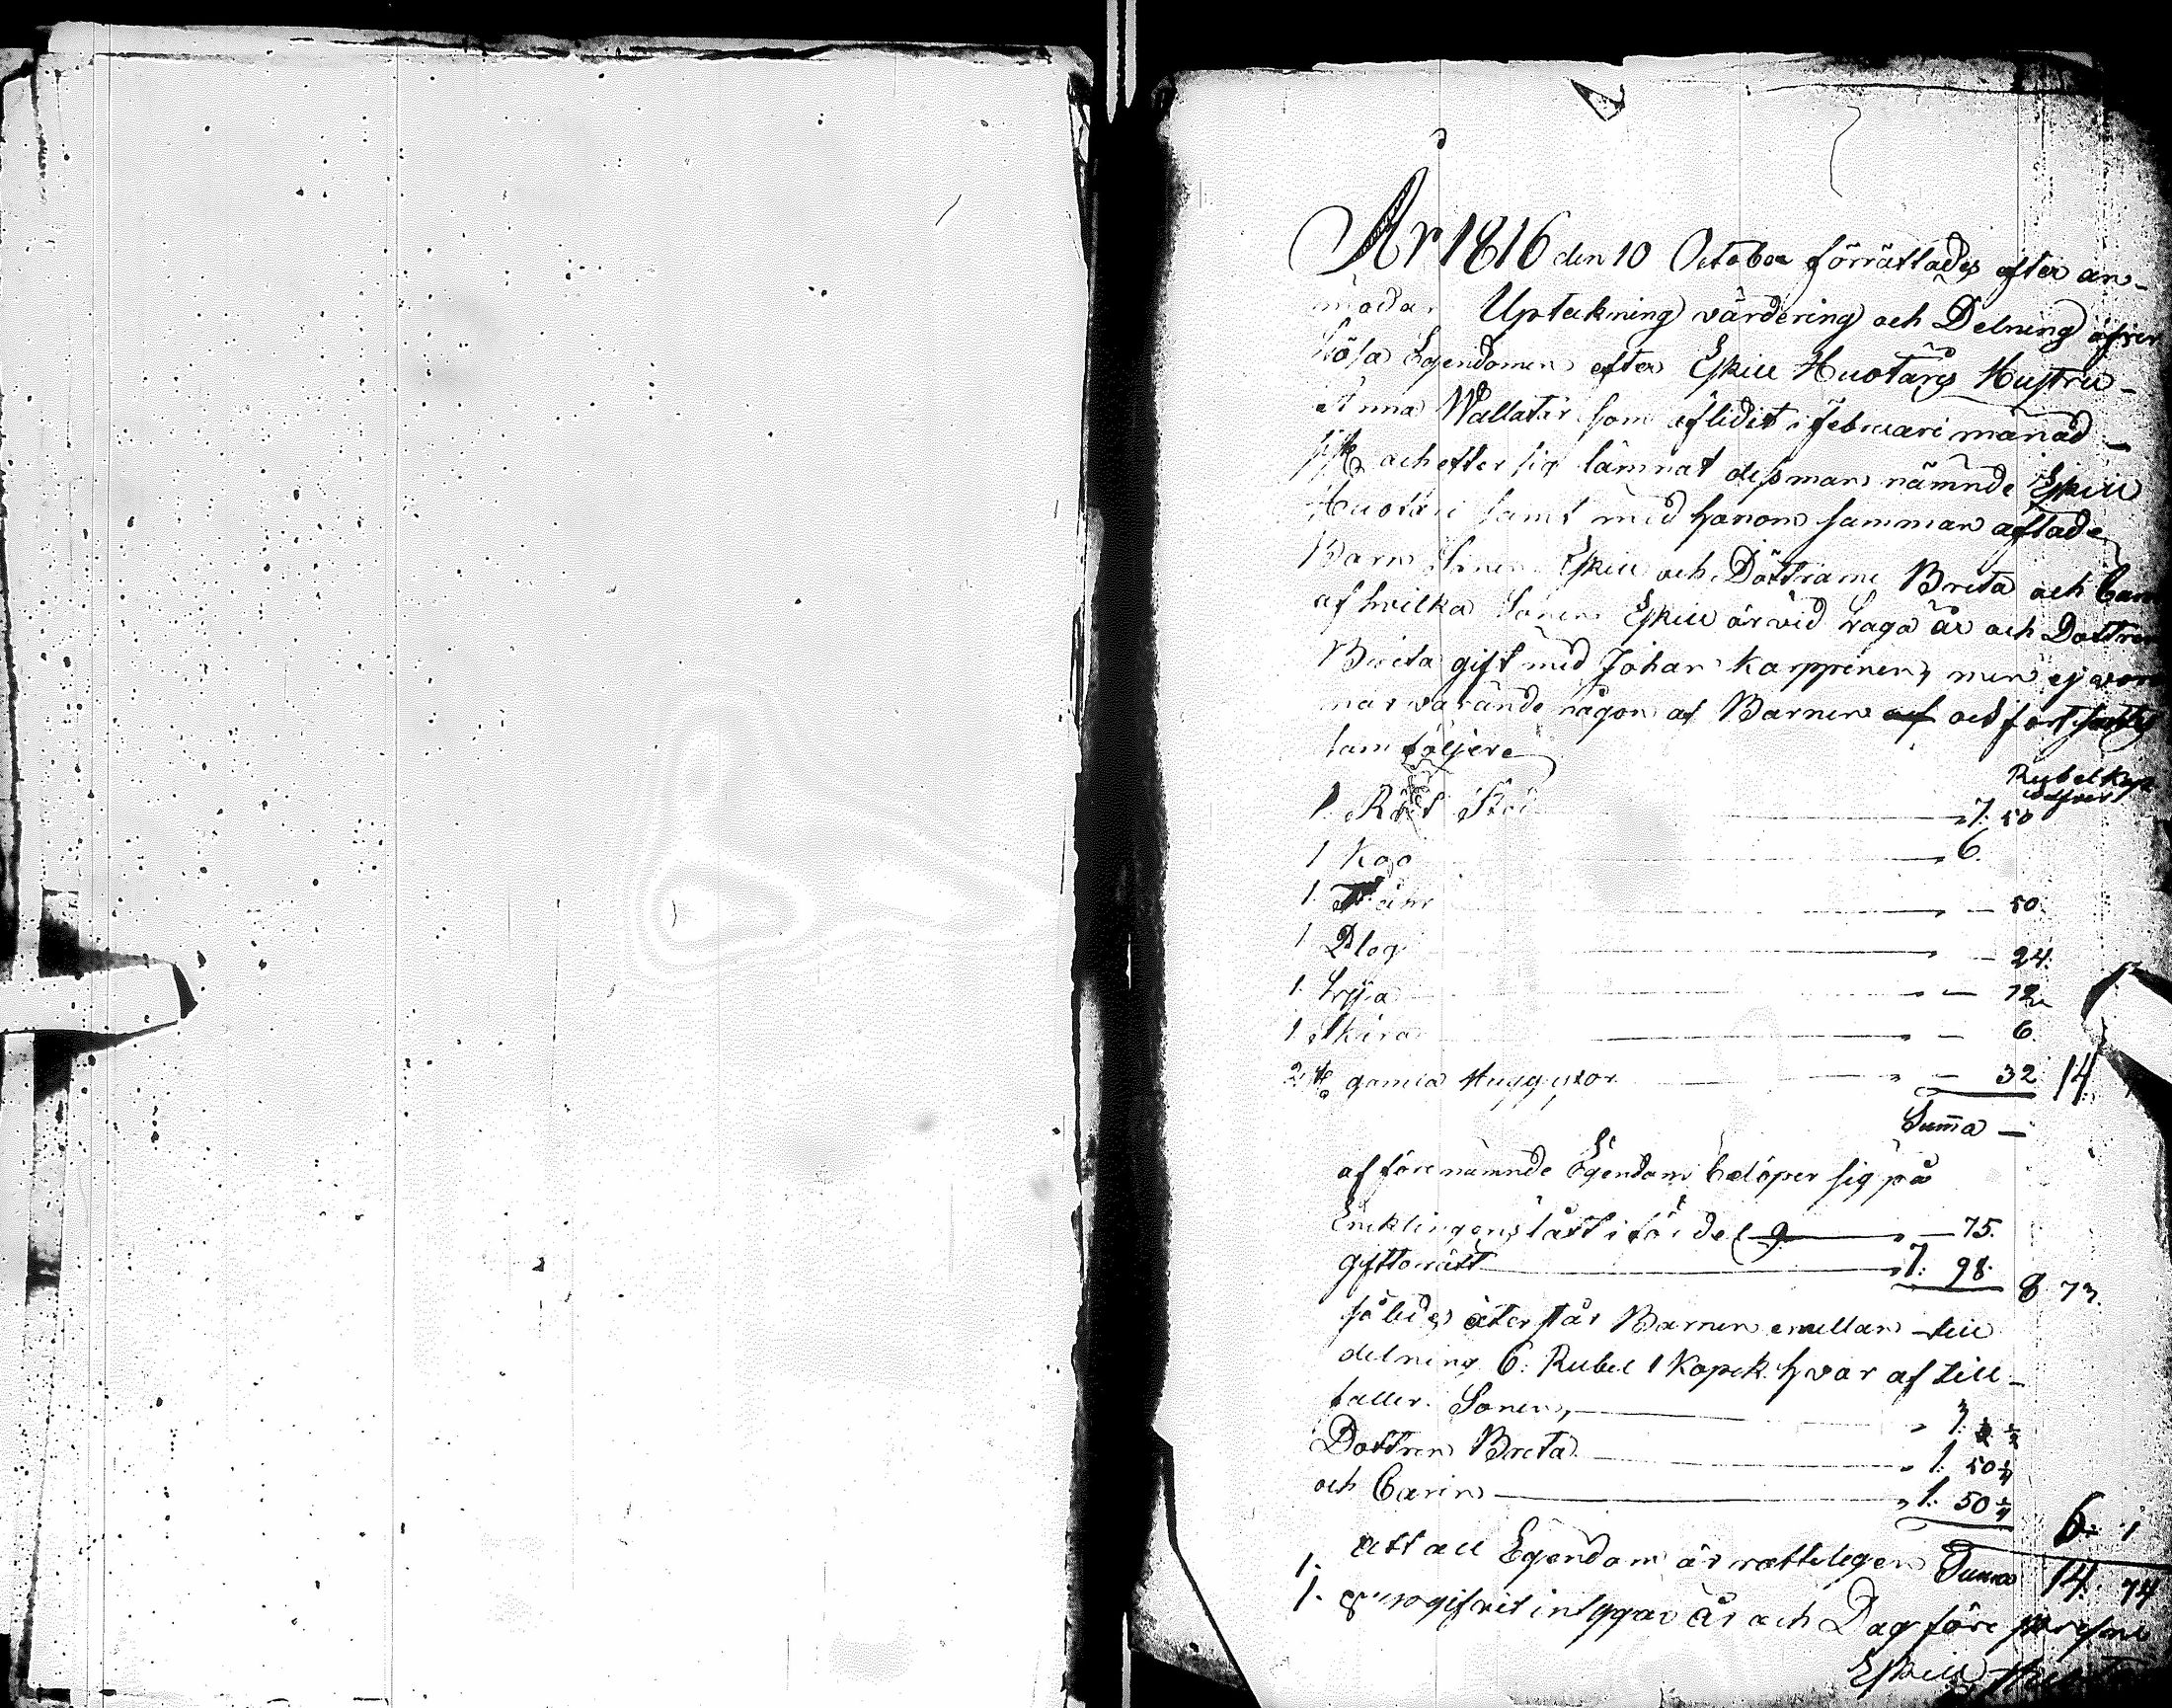 År 1816 den 10 October förrättades efter an-
modan Upteckning värdering och Delning öfver
Lösa Egendomen efter Eskill Huotaris Hustru
Anna Wallatar som aflidit i februari månad
och efter sig lämnat dess man nämnde Eskill
Huotari samt med honom samman aflade
Barn Sonen Eskill och Döttrarne Breta och Carin
af hvilka Sonen Eskill är vid laga år och Dottren
Breta gift med Johan Karppinen, men ej
närvarande någon af Barnen och fortsattes
som följer
Rubel Kop
Silfver
1. Rödt Sto 7. 50
1 Koo 6.
1. 50.
1 Plog 24.
1. Lijsa 12
1 Skära 6.
2 st gamla Huggyxor 32 14
Summa —
af förenämnde Egendom belöper sig på
Encklingens lått i fördel 75.
giftorätt 7. 98. 8 73.
således återstår Barnen emellan till
delning 6. Rubel 1 Kopek hvar af till-
faller Sonen, 3. ½
Dottren Breta 1. 50 ¼
och Carin 1. 50 ¼ 6. 1
Summa 14. 74
1. att all Egendom är rätteligen
1. upgifvit intygar År och Dag före
Eskill Huotari